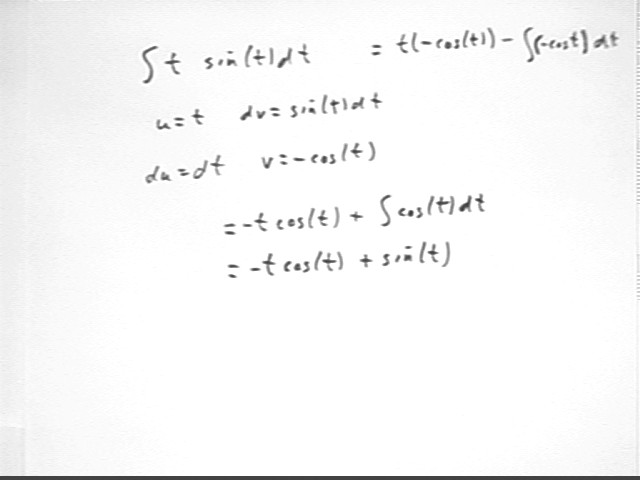 ∫ t sin(t)dt = t(-cos(t)) - ∫(-cost) dt
u=t dv=sin(t)dt
du=dt v=-cos(t)
=-t cos(t) + ∫cos(t)dt
=-t cos(t) + sin(t)